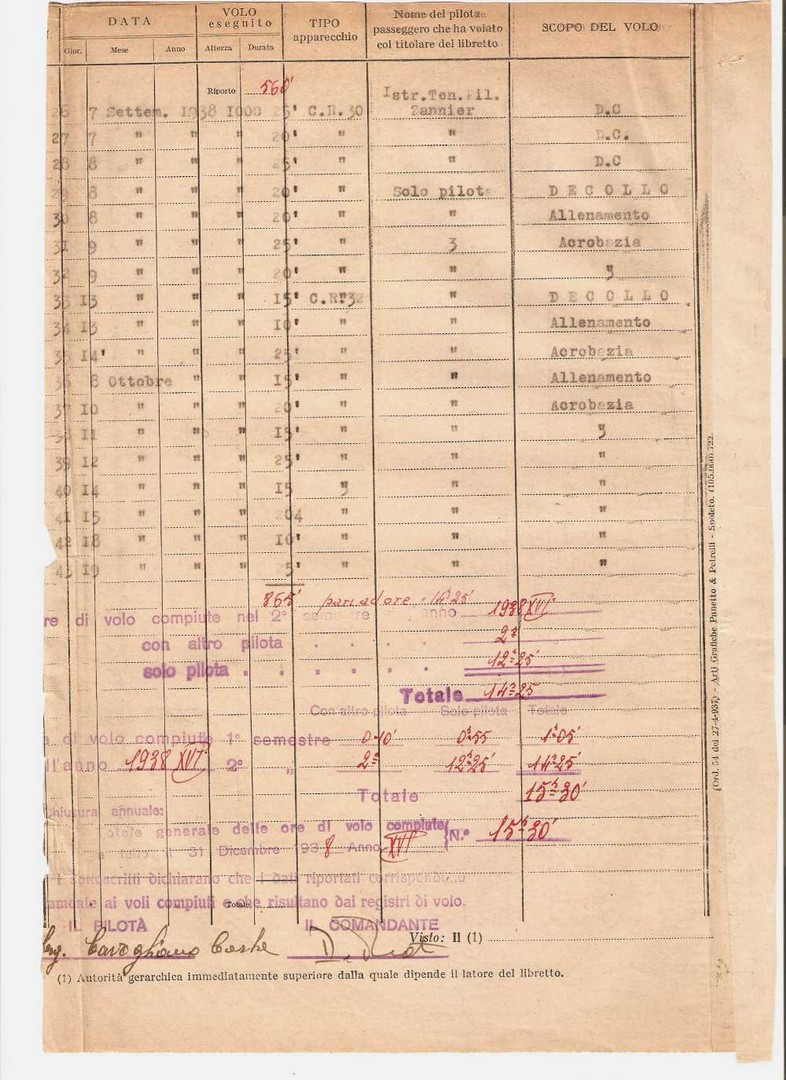 DATA VOLO eseguito TIPO apparecchio Nome del pilota passeggero che ha volato col titolare del libretto SCOPO DEL VOLO
Gior. Mese Anno Altezza Durata
Riporto 560'
26 7 Settem. 1938 1000 25' C.R.30 Istr.Ten.Pil. Zannier D.C
27 7 " " " 20' " " D.C.
28 8 " " " 25' " " D.C
29 8 " " " 20' " Solo pilota DECOLLO
30 8 " " " 20' " " Allenamento
31 9 " " " 25' " 3 Acrobazia
32 9 " " " 20' " " "
33 13 " " " 15' C.R.32 " DECOLLO
34 13 " " " 10' " " Allenamento
35 14' " " " 25' " " Acrobazia
36 8 Ottobre " " 15' " " Allenamento
37 10 " " " 20' " " Acrobazia
38 11 " " " 15' " " "
39 12 " " " 25' " " "
40 14 " " " 15 " " "
41 15 " " " 204 " " "
42 18 " " " 10' " " "
43 19 " " " 5' " " "
865' pari ad ore = 14.25'
re di volo compiute nel 2° semestre anno 1938 XVI
con altro pilota . . . . 2h
solo pilota . . . . . 12h25'
Totale 14h25
Con altro pilota Solo pilota Totale
e di volo compiute 1° semestre 0h10' 0h55 1h05'
ll'anno 1938 XVI 2° " 2h 12h25' 14h25'
Totale 15h30'
chiusura annuale:
Totale generale delle ore di volo compiute
a tutto il 31 Dicembre 1938 Anno XVII N.° 15h30'
I sottoscritti dichiarano che i dati riportati corrispondono
amente ai voli compiuti e che risultano dai registri di volo.
Totale
IL PILOTA IL COMANDANTE
Visto: Il (1)
(1) Autorità gerarchica immediatamente superiore dalla quale dipende il latore del libretto.
(Ord. 54 del 27-4-937) - Arti Grafiche Panetto & Petrelli - Spoleto.